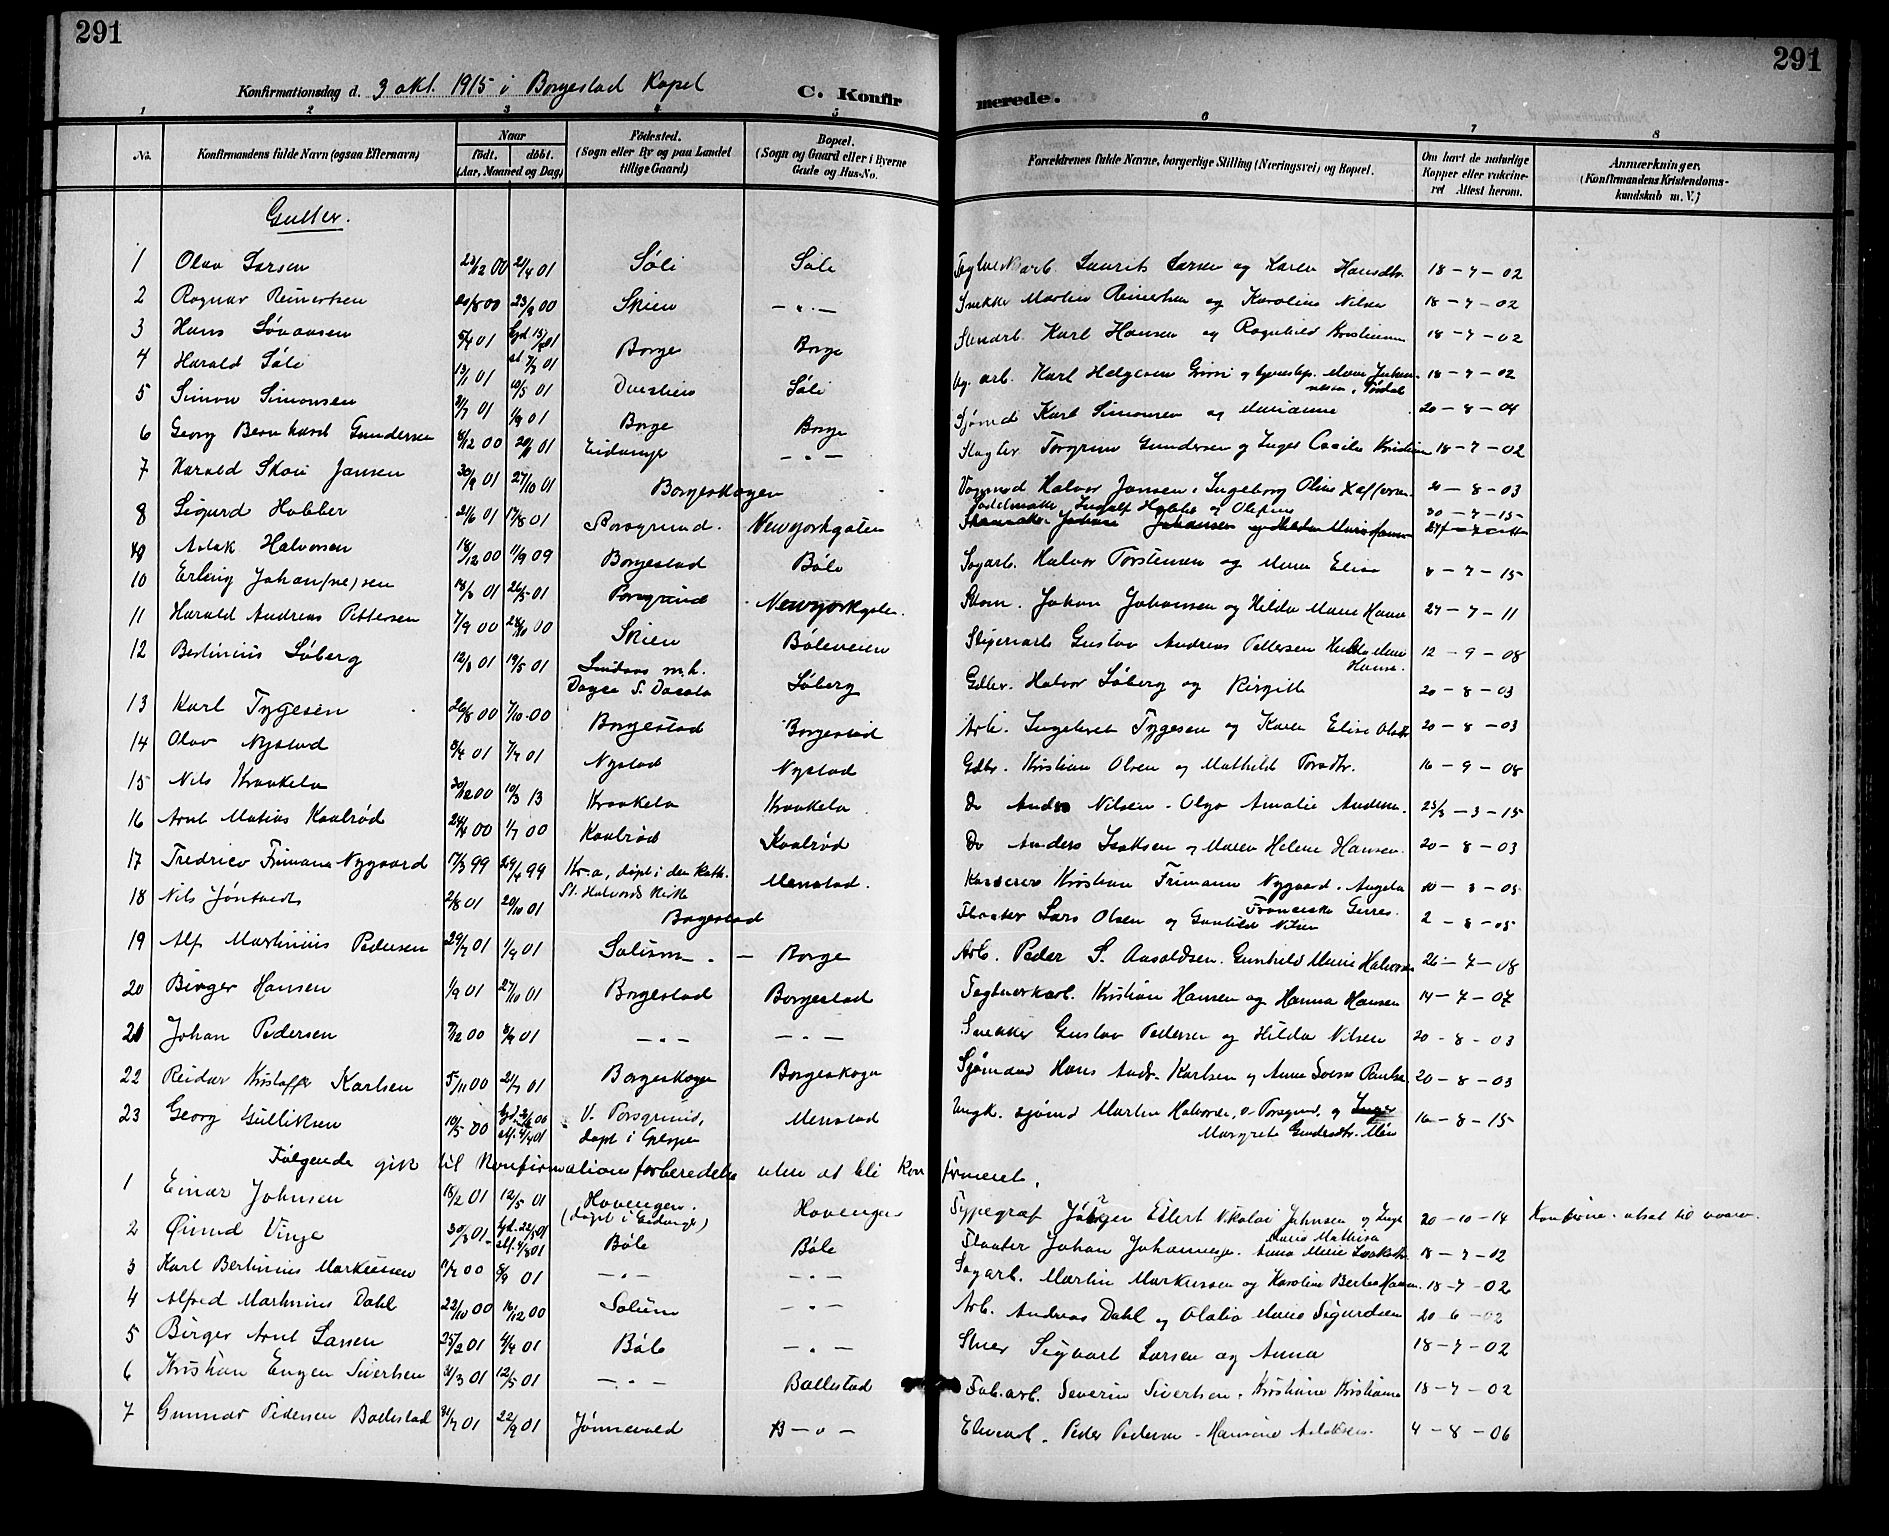 291
291
Konfirmationsdag d. 3 okt. 1915 i Borgestad Kapel
C. Konfirmerede.
1 2 3 4 5 6 7 8
No. Konfirmandens fulde Navn (ogsaa Efternavn) Naar født. døbt. (Aar, Maaned og Dag) Födested. (Sogn eller By og paa Landet tillige Gaard) Bopæl. (Sogn og Gaard eller i Byerne Gade og Hus-No. Forældrenes fulde Navne, borgerlige Stilling (Næringsvei) og Bopæl. Om havt de naturlige Kopper eller vakcineret Attest herom. Anmærkninger. (Konfirmandens Kristendomskundskab m. V.)
Gutter.
1 Olav Larsen 23/12 00 21/4 01 Søli Søli Teglverkarb. Laurits Larsen og Karen Hansdtr. 18-7-02
2 Ragnar Reinertsen 20/8 00 23/9 00 Skien -"- Snekker Martin Reinertsen og Karoline Nilsen 18-7-02
3 Hans Borge Borge Stenarb. Karl Hansen og Ragnhild Kristiansen 18-7-02
4 Harald Søli 13/1 01 10/5 01 Søli Karl 18-7-02
5 Simon Simonsen 01 1/9 01 Borge Borge Sjømd Karl Simonsen og Marianne 20-8-04
6 Georg Bernhard Gundersen 8/12 00 20/1 01 Eidanger -"- Slagter Torgrim Gundersen og Inger Cecilie Kristiansen 18-7-02
7 Harald Skou Jansen 30/9 01 27/10 01 Borgeskogen Halvor Jansen, Ingeborg Oline 20-8-03
8 Sigurd Hobber 21/6 01 17/8 01 Porsgrund. Newyorkgaten 20-7-15
9 Aslak Halvorsen 18/12 00 11/9 09 Borgestad Bøle Sagarb. Halvor Torstensen og Elise 8-7-15
10 Erling Johan(ne)sen 01 01 Porsgrund Newyorkgaten. Skom. Johan Johansen og Hilda Marie Hansen 27-7-11
11 Harald Andreas Pettersen 7/9 00 28/10 00 Skien Bøleveien Gustav Andreas Pettersen Hansen. 12-9-08
12 Bertinius Søberg 12/3 01 19/5 01 Søberg Gdbr. Halvor Søberg og Birgitte 20-8-03
13 Karl Tygesen 26/8 00 7/10 00 Borgestad Borgestad Arb. Ingebret Tygesen og Karen Elise Olsdtr 20-8-03
14 Olav Nystad 8/4 01 7/7 01 Nystad Nystad Gdbr. Kristian Olsen og Mathilde 16-9-08
15 Nils Kraakela 30/12 00 10/3 13 Kraakela Kraakela Do Anders Nilsen. Olga Amalie Andersen. 23/3-3-15
16 Arnt Matias Kaalrød 24/4 00 1/7 00 Kaalrød Kaalrød Do Anders Isaksen og Maren Helene Hansen. 20-8-03
17 Fredrico Frimann Nygaard 17/3 99 29/4 99 Kr-a, døpt i den kath. St. Halvards Kirke Menstad. Kasserer Kristian Frimann Nygaard. Angela Franciska Gerres. 10-3-05
18 Nils Jøntvedt 2/8 01 20/10 01 Borgestad Fløater Lars Olsen og Gunhild Nilsen 2-8-05
19 Alf Martinius Pedersen 29/7 01 1/9 01 Solum - Borge Arb. Peder S. Aasoldsen. Gunhild Marie Halvorsen 26-7-08
20 Birger Hansen 1/9 01 27/10 01 Borgestad Borgestad Teglverkarb. Kristian Hansen og Hanna Hansen 14-7-07
21 Johan Pedersen 9/12 00 8/4 01 -"- -"- Snekker Gustav Pedersen og Hilda Nilsen 20-8-03
22 Reidar Kristoffer Karlsen 5/11 00 21/7 01 Borgeskogen Borgeskogen Sjømand Hans Andr. Karlsen og Anne Sverre Paulsen. 20-8-03
23 Georg Gulliksen 10/5 00 V. Porsgrund, døpt i Gjerpen Menstad Ungk. sjømd Martin Halvorsen, V. Porsgrund, og Inger Margrete 16-8-15
Følgende gik til Konfirmationsforberedelse uten at bli konfirmeret.
1 Einar Johnsen 18/2 01 12/5 01 Hovengen. (døpt i Eidanger) Hovengen Typegraf Jørgen Eilert Nikolai Johnsen og Inga Marie Mathisa 20-10-14
2 Øivind Vinje 30/3 01 Bøle Bøle Fløater Johan Anna Marie Isaksdtr. 18-7-02
3 Karl Bertinius Markussen 00 8/9 01 -"- -"- Sagarb. Martin Markussen og Karoline Bertea Hansen. 18-7-02
4 Alfred Martinius Dahl 22/10 00 16/12 00 Solum -"- Arb. Andreas Dahl og Olalia Marie Sigurdsen 20-6-02
5 Birger Arnt Larsen 25/2 01 4/4 01 Bøle -"- Sigvart Larsen og Anna 18-7-02
6 Kristian Eugen Sivertsen 31/3 01 12/5 01 -"- Ballestad Fab.arb. Severin Sivertsen. Kristiane Kristiansen 18-7-02
7 Gunnar Pedersen Ballestad 31/7 01 22/9 01 Jønnevald B-"- Peder Pedersen - 4-8-06